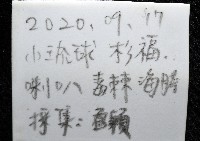 2020.09.17
小琉球 杉福.
喇叭毒棘海膽
採集: